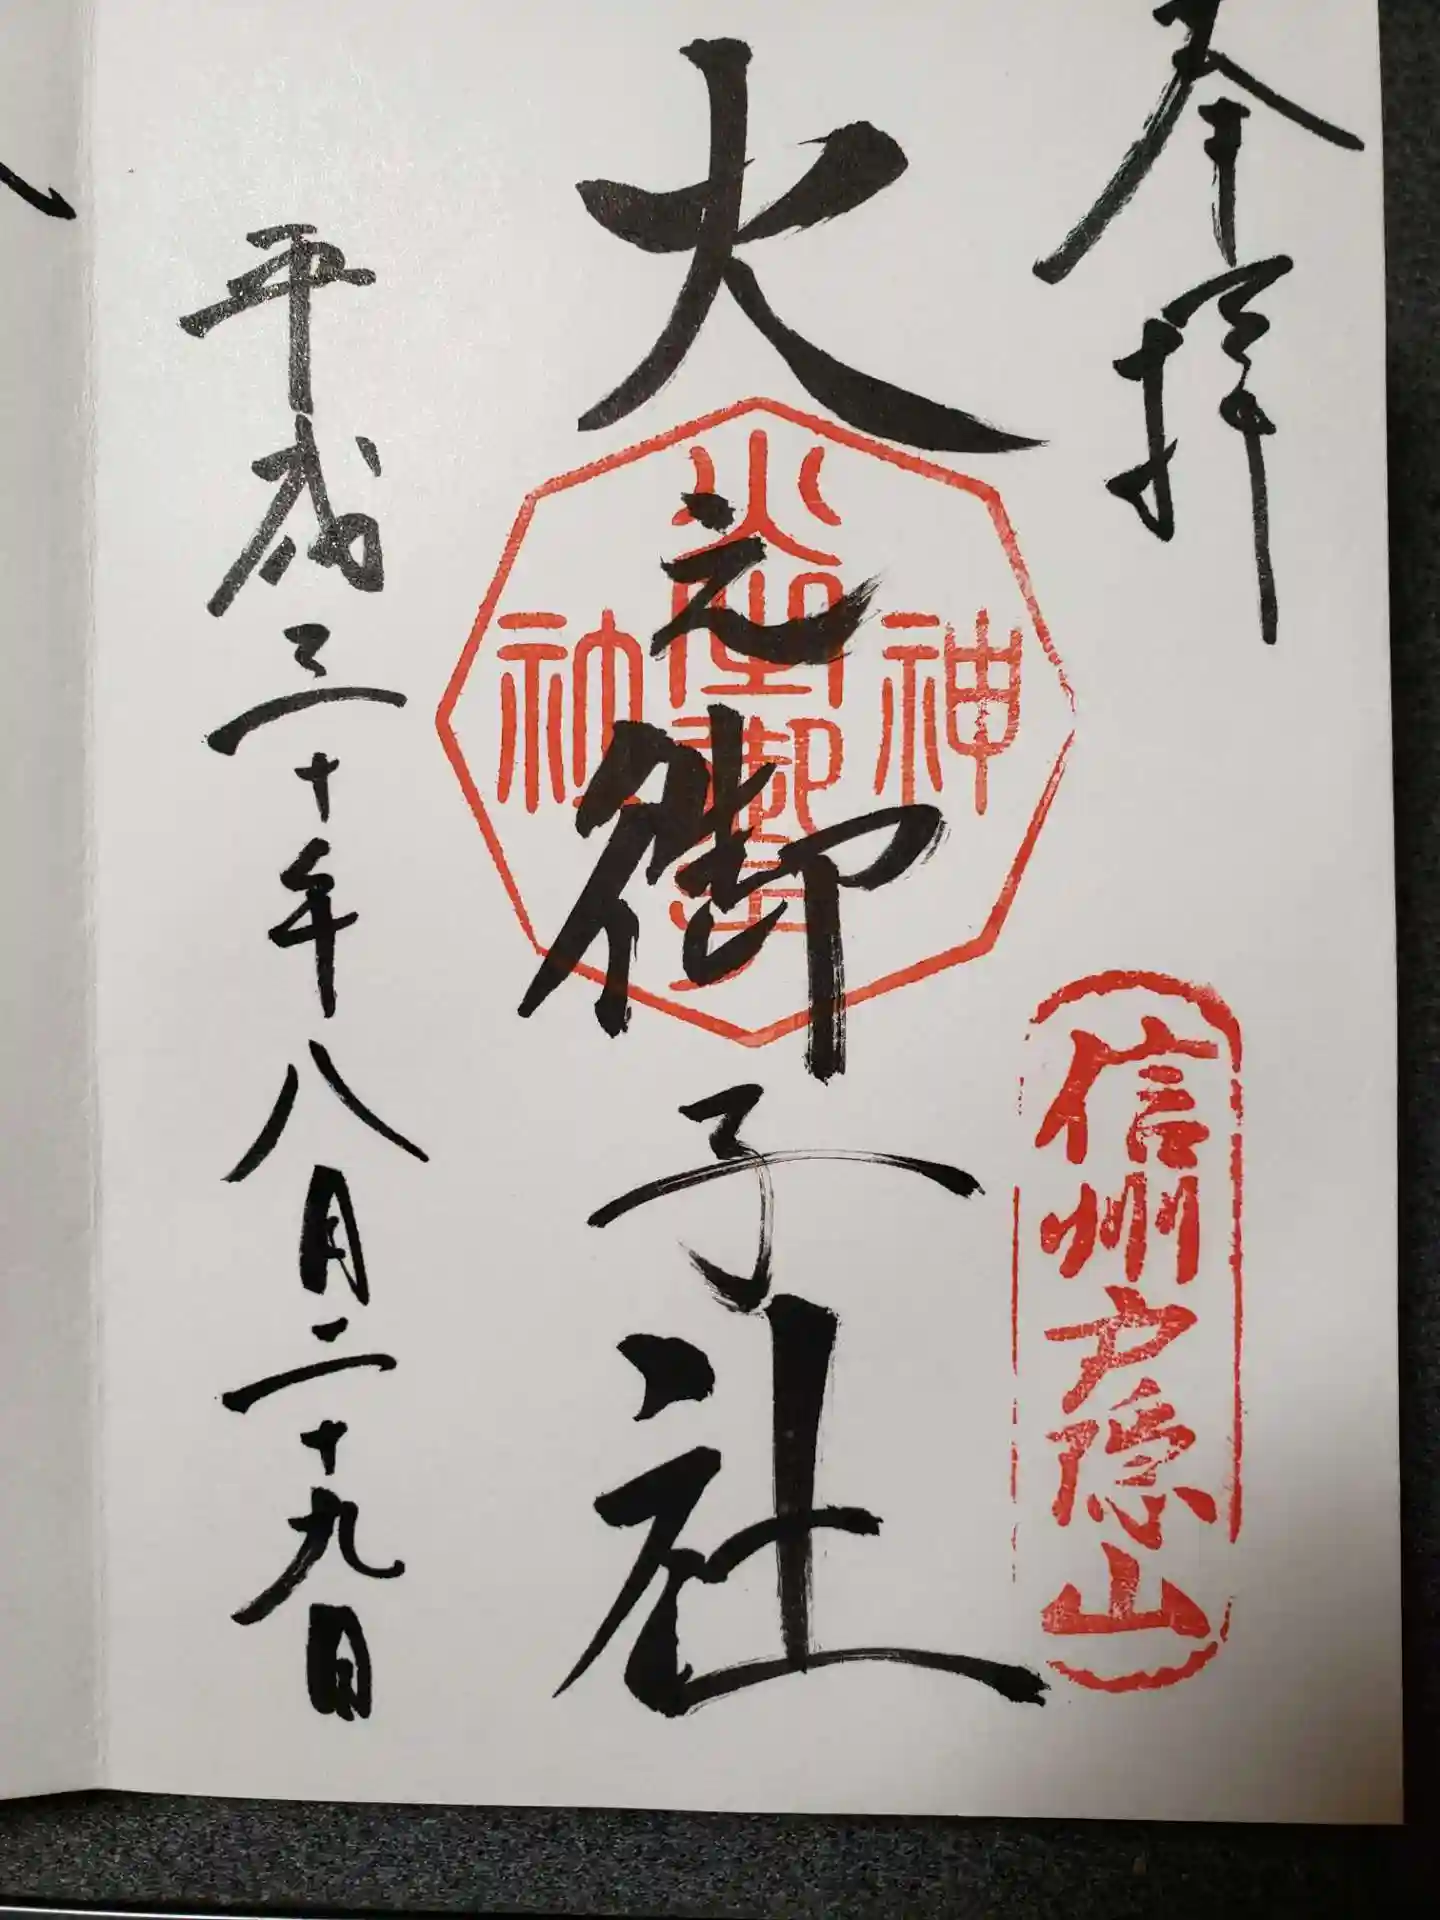 奉拝
信州戸隠山
火之御子社
平成三十年八月二十九日